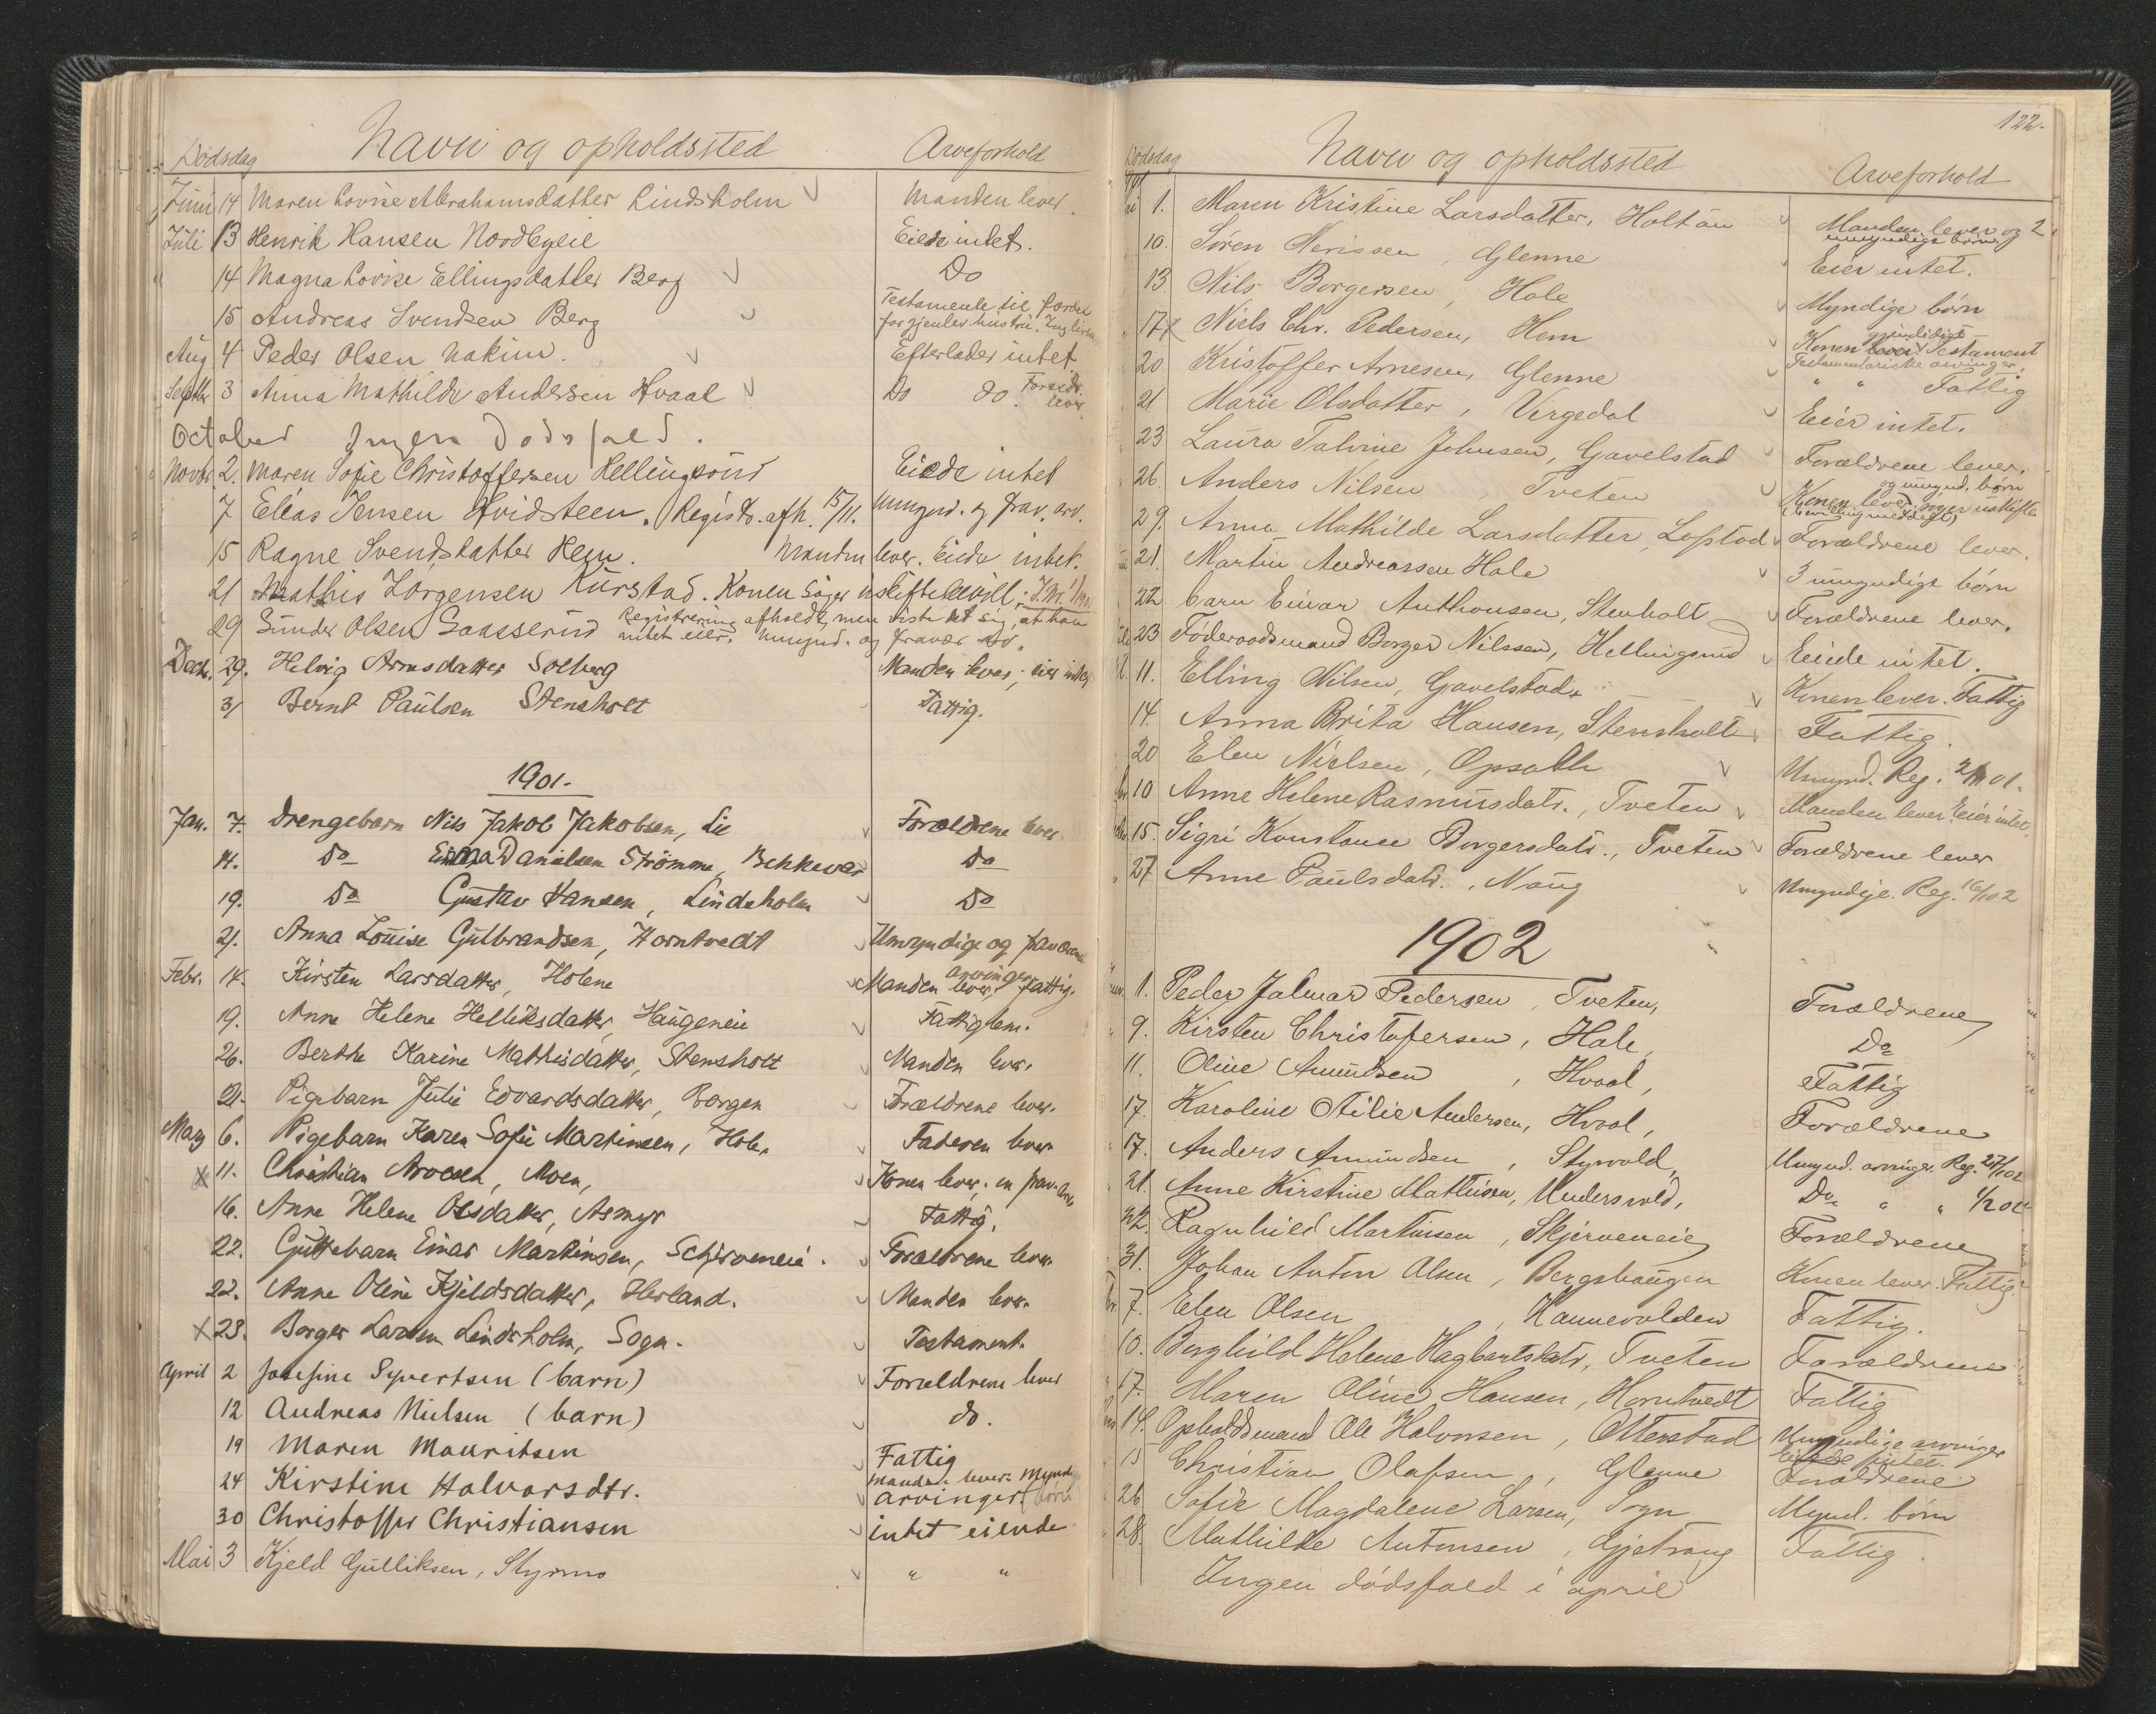 Dødsdag Navn og opholdssted Arveforhold
Juni 14 Maren Lovise Abrahamsdatter Lindsholm Manden lever.
Juli 13 Henrik Hansen Nordbyeie Eiede intet.
" 14 Magna Lovise Ellingsdatter Berg Do
15 Andreas Svendsen Berg Testamente til fordel
for gjenlev. hustru.
Aug 4 Peder Olsen Efterlader intet.
Septbr 3 Anna Mathilde Andersen Hvaal Do do. Forældr.
lever
October Ingen Dødsfald.
Novbr 2. Maren Sofie Christoffersen Hellingsrud Eiede intet
7 Elias Jensen Hvidsteen. Registr. afh. 15/11. Umynd. og frav. arv.
15 Ragne Svendsdatter Hem. Manden lever. Eiede intet.
21 Mathis Jørgensen Kurstad. Konen søger uskiftebevill.
29 Gunder Olsen Gaasserud Registrering afholdt, men viste det sig, at han
intet eier. Umynd. og fravær. arv.
Decbr. 29. Helvig Arnesdatter Solberg Manden lever; eier intet
31 Bernt Paulsen Stensholt Fattig.
1901.
Jan. 7. Drengebarn Nils Jakob Jakobsen, Lie Forældrene lever.
14. Do Einar Danielsen Strömme, Bekkevar Do
19. Do Gustav Hansen, Lindsholm Do
21. Anna Louise Gulbrandsen, Horntvedt Umyndige og fraværende
arvinger
Febr. 14. Kirsten Larsdatter, Holene Manden lever, fattig.
19. Anne Helene Helliksdatter, Haugeneie Fattiglem.
26. Berthe Karine Mathisdatter, Stensholt Manden lever.
21. Pigebarn Julie Edvardsdatter, Borgen Forældrene lever.
Marts 6. Pigebarn Karen Sofie Martinsen, Hole. Faderen lever
x 11. Christian Arvesen, Moen, Konen lever. en frav.
16. Anne Helene Olsdatter, Asmyr Fattig.
22. Guttebarn Einar Martinsen, Schjerveneie. Forældrene lever.
22. Anne Oline Kjeldsdatter, Herland. Manden lever.
x 23. Borger Larsen Lindsholm, Sogn. Testament.
April 2 Josefine Syvertsen (barn) Forældrene lever
12 Andreas Nielsen (barn) do.
19 Maren Mauritsen Fattig
24 Kirstine Halvorsdtr. Manden lever. Mynd.
arvinger (børn
30 Christoffer Christiansen intet eiende
Mai 3 Kjeld Gulliksen, Styrmo " "
122.
Dødsdag Navn og opholdssted Arveforhold
1. Maren Kristine Larsdatter, Holtan Manden lever og 2
umyndige børn
10. Søren Nerissen, Glenne Eier intet.
13. Nils Borgersen, Hole Myndige børn
17 x Niels Chr. Pedersen, Hem Konen lever Testament
20 Kristoffer Arnesen, Glenne Testamentariske arvinger
" " Fattig
21 Marie Olsdatter, Vergedal Eier intet.
23 Laura Talvine Johnsen, Gavelstad Forældrene lever.
26. Anders Nilsen, Tveten og umynd. børn
Konen lever, uskiftet
29. Anna Mathilde Larsdatter, Løpstad Forældrene lever.
21. Martin Andreassen Hole 3 umyndige børn
22 barn Einar Anthonsen, Stenholt Forældrene lever.
23 Føderaadsmand Borger Nilssen, Hellingsrud Eiede intet.
11. Elling Nilsen, Gavelstad Konen lever. Fattig
14. Anna Brita Hansen, Stensholt Fattig.
20 Elen Nielsen, Opsahl Umynd. Reg.
10 Anne Helene Rasmusdatr., Tveten Manden lever. Eier intet
15. Sigri Konstance Borgersdatr., Tveten Forældrene lever
27 Anne Paulsdatr., Haug Umyndige. Reg. 16/1 02
1902
1. Peder Jalmar Pedersen, Tveten, Forældrene
9. Kirsten Christofersen, Hole, Do
11. Oline Amundsen, Hvaal, Fattig
17. Karoline Otilie Andersen, Hvaal, Forældrene
17. Anders Amundsen, Styrvold, Umynd. arvinger. Reg. 27/1 02
21. Anne Kirstine Mathisen, Undersvold, Do " "
22. Ragnhild Martinsen, Skjerveneie Forældrene
31. Johan Anton Olsen, Bergshaugen Konen lever. Fattig.
7. Elen Olsen, Kannevolden Fattig.
10. Borghild Helene Hagbartsdatr, Tveten Forældrene
17. Maren Oline Hansen, Horntvedt Fattig
14. Opholdsmand Ole Halvorsen, Otterstad Umyndige arvinger
Eiede intet.
15 Christian Olafsen, Glenne Forældrene
26 Sofie Magdalene Larsen, Sogn Mynd. børn
28. Mathilde Antonsen, Gjetrang Fattig.
Ingen dødsfald i april